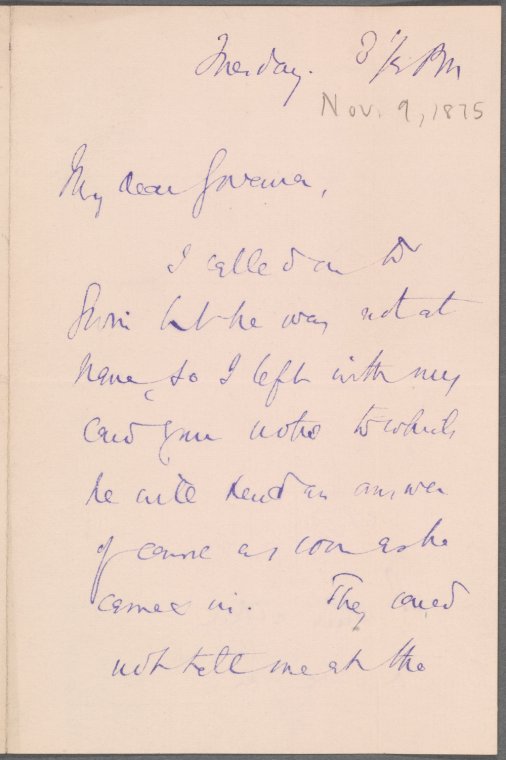 Tuesday. 3 1/2 PM
Nov. 9, 1875
My dear Governor,
I called on
but he was not at
home, so I left with my
card your note to which
he will send an answer
of course as soon as he
comes in. They could
not tell me at the